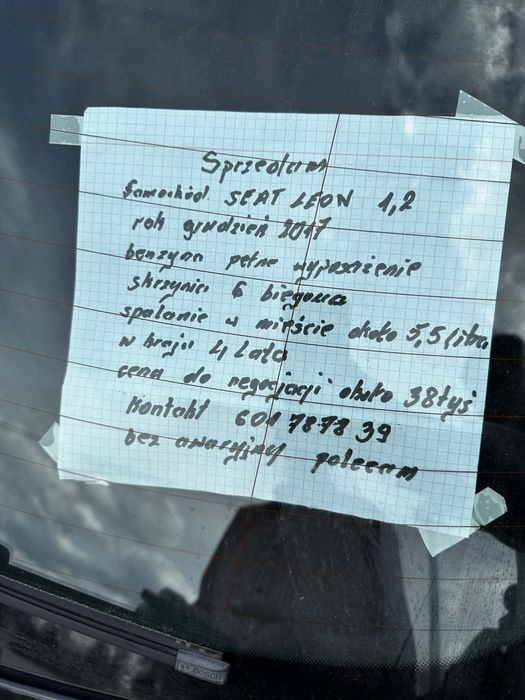 Sprzedam
Samochód SEAT LEON 1,2
rok grudzień 2017
benzyna pełne wyposażenie
skrzynia 6 biegowa
spalanie w mieście około 5,5 litra
w kraju 4 lata
cena do negocjacji około 38tyś
Kontakt 601 7878 39
bez awaryjny polecam
BOSCH